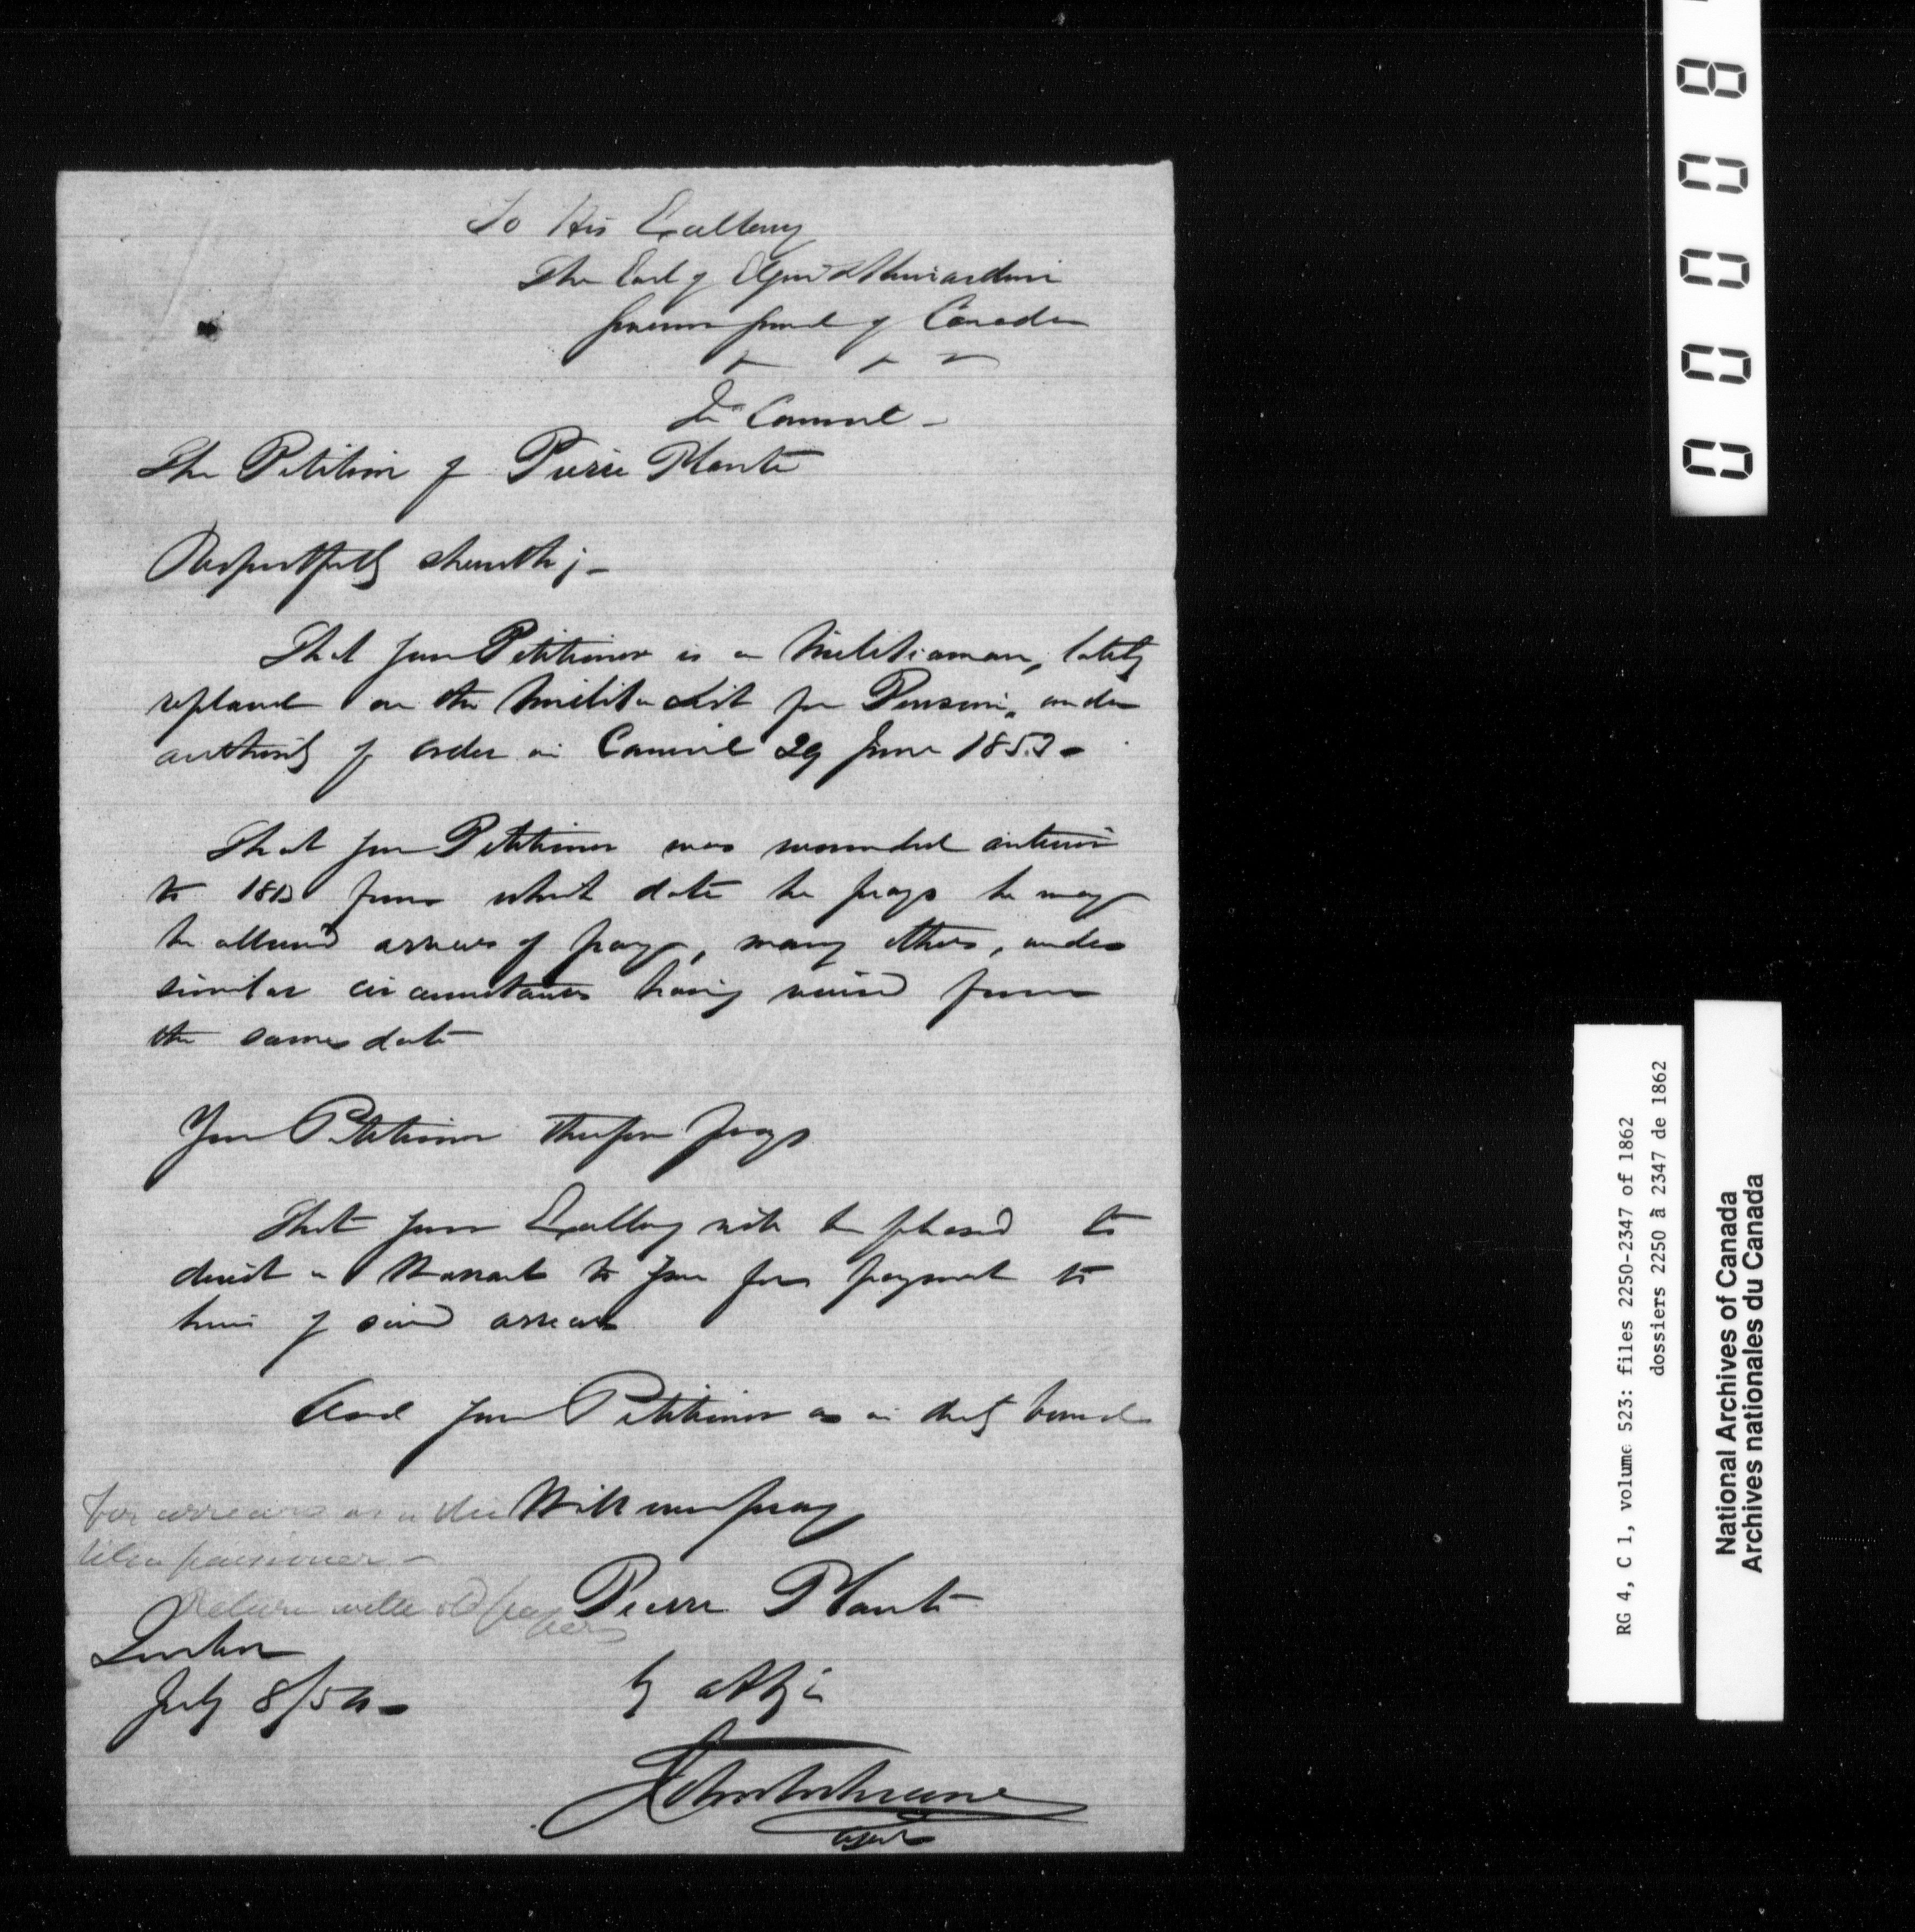 To His Excellency
The Earl of Elgin & Kincardine
Governor General of Canada
In Council -
The Petition of Pierre Plante
Respectfully sheweth; -
That your Petitioner is a Militiaman, lately
replaced on the Militia List for Pension, under
authority of order in Council 29 June 1853 -
That your Petitioner was wounded anterior
to 1813 from which date he prays he may
be allowed arrears of pay, many others, under
similar circumstances having received from
the same date
Your Petitioner therefore prays
That your Excellency will be pleased to
direct a Warrant to issue for payment to
him of said arrears
And your Petitioner as in duty bound
Will ever pray
for arrears as a Mi-
litia pensioner -
Return with old papers
Pierre Plante
Quebec
July 8/54 -
by atty
John Cochrane
agent
00008
RG 4, C 1, volume 523: files 2250-2347 of 1862
dossiers 2250 à 2347 de 1862
National Archives of Canada
Archives nationales du Canada